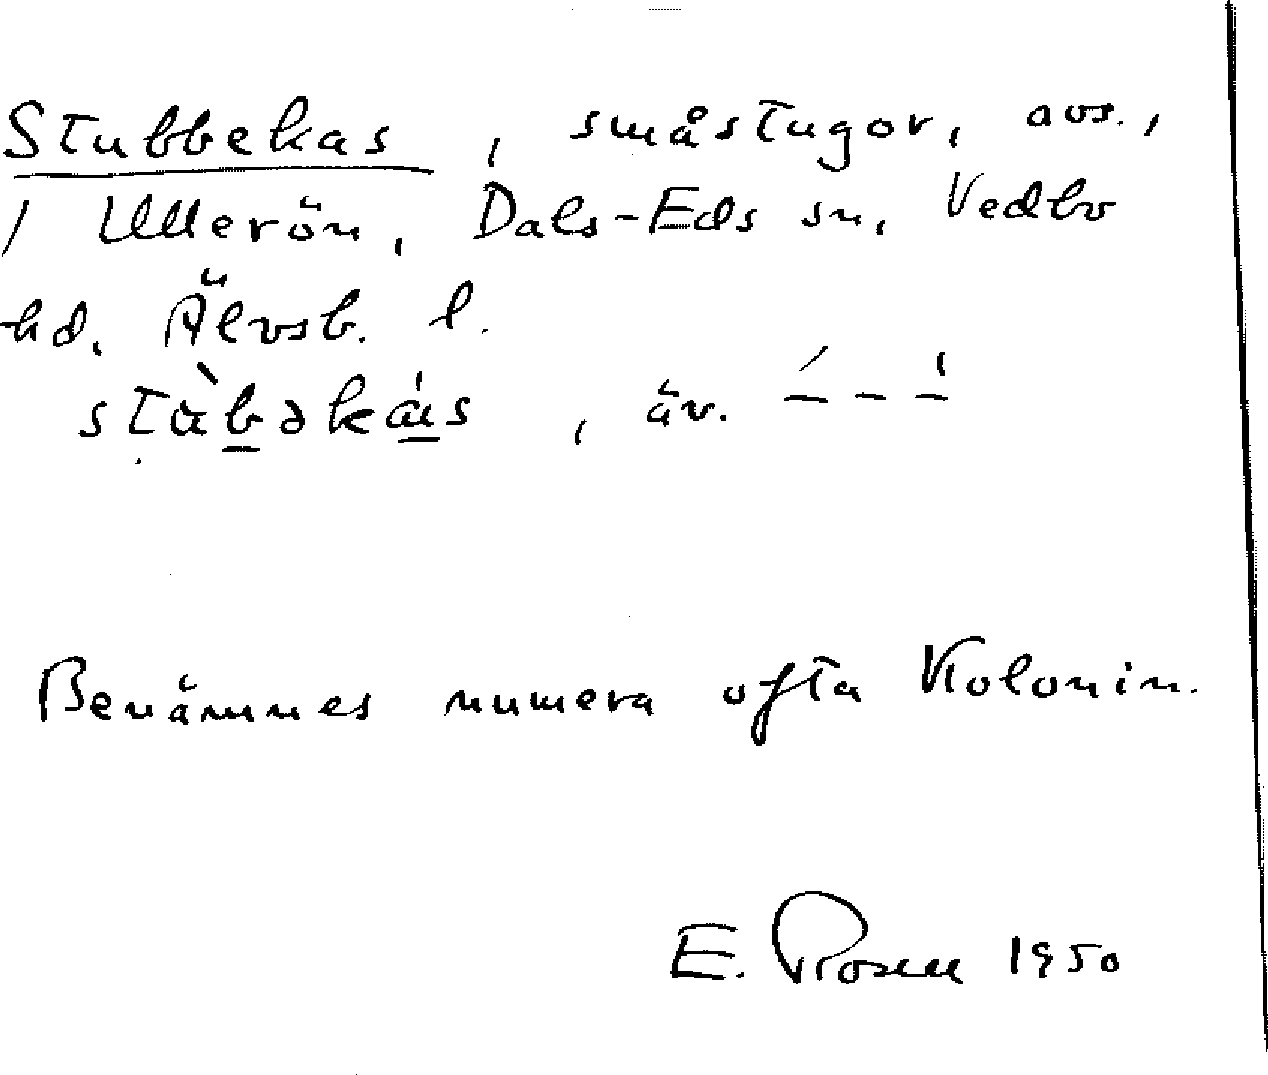 Stubbekas, småstugor, avs.,
/ Ullerön, Dals-Eds sn, Vedbo
hd. Älvsb. l.
, äv. ́– – –́
Benämnes numera ofta Kolonin.
E. Rosen 1950